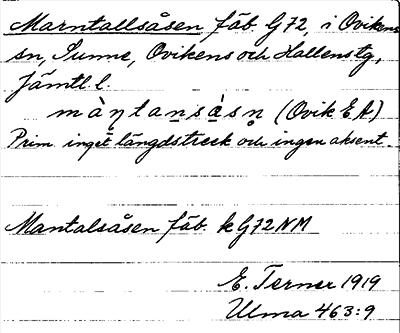 Marntallsåsen fäb. G72, i Ovikens
sn, Sunne, Ovikens och Hallens tg,
Jämtl l.
màṇtaṇsàsṇ (Ovik E A)
Prim. inget längdstreck och ingen aksent.
Mantalsåsen fäb. kG72NM
E. Terner 1919
Ulma 463:9